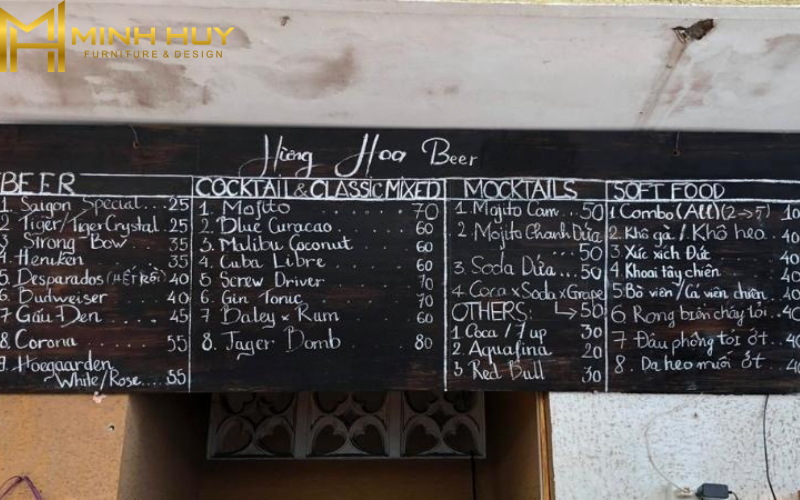 MINH HUY
FURNITURE & DESIGN
Hiêng Hoa Beer
BEER
1 Saigon Special...25
2 Tiger/Tiger Crystal.25
3 Strong-Bow....35
4. Heniken.......35
5. Desparados (HẾT RỒI) 40
6. Budweiser.....40
7 Gấu Đen.......45
8. Corona........55
9. Hoegaarden
White/Rose....55
COCKTAIL & CLASSIC MIXED
1. Mojito.......70
2. Blue Curacao.....60
3. Mulibu Coconut....60
4. Cuba Libre......60
5 Screw Driver.....70
6. Gin Tonic.......70
7 Baley x Rum......60
8. Jager Bomb....80
MOCKTAILS
1. Mojito Cam...50
2. Mojito Chanh Dứa
.......50
3. Soda Dứa...50
4 Cora x Soda x Grape
↳50
OTHERS:
1 Coca / 7 up 30
2. Aquafina 20
3 Red Bull 30
SOFT FOOD
1 Combo (All) (2→5)
2. Khô gà / Khô heo
3. Xúc xích Đức
4. Khoai tây chiên
5. Bò viên/Cá viên chiên
6. Rong biển cháy tỏi
7 Đậu phộng tỏi ớt
8. Da heo muối ớt